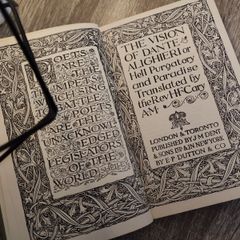 POETS
ARE THE
TRUMPETS
WHICH SING
TO BATTLE
POETS
ARE THE
UNACKNOW
LEDGED
LEGISLATORS
OF THE
WORLD
THE VISION
OF DANTE
ALIGHIERI or
Hell Purgatory
and Paradise
Translated by
the Rev. H.F. Cary
A.M.
LONDON & TORONTO
PUBLISHED BY J·M·DENT
& SONS LTD & IN NEW YORK
BY E·P·DUTTON & CO